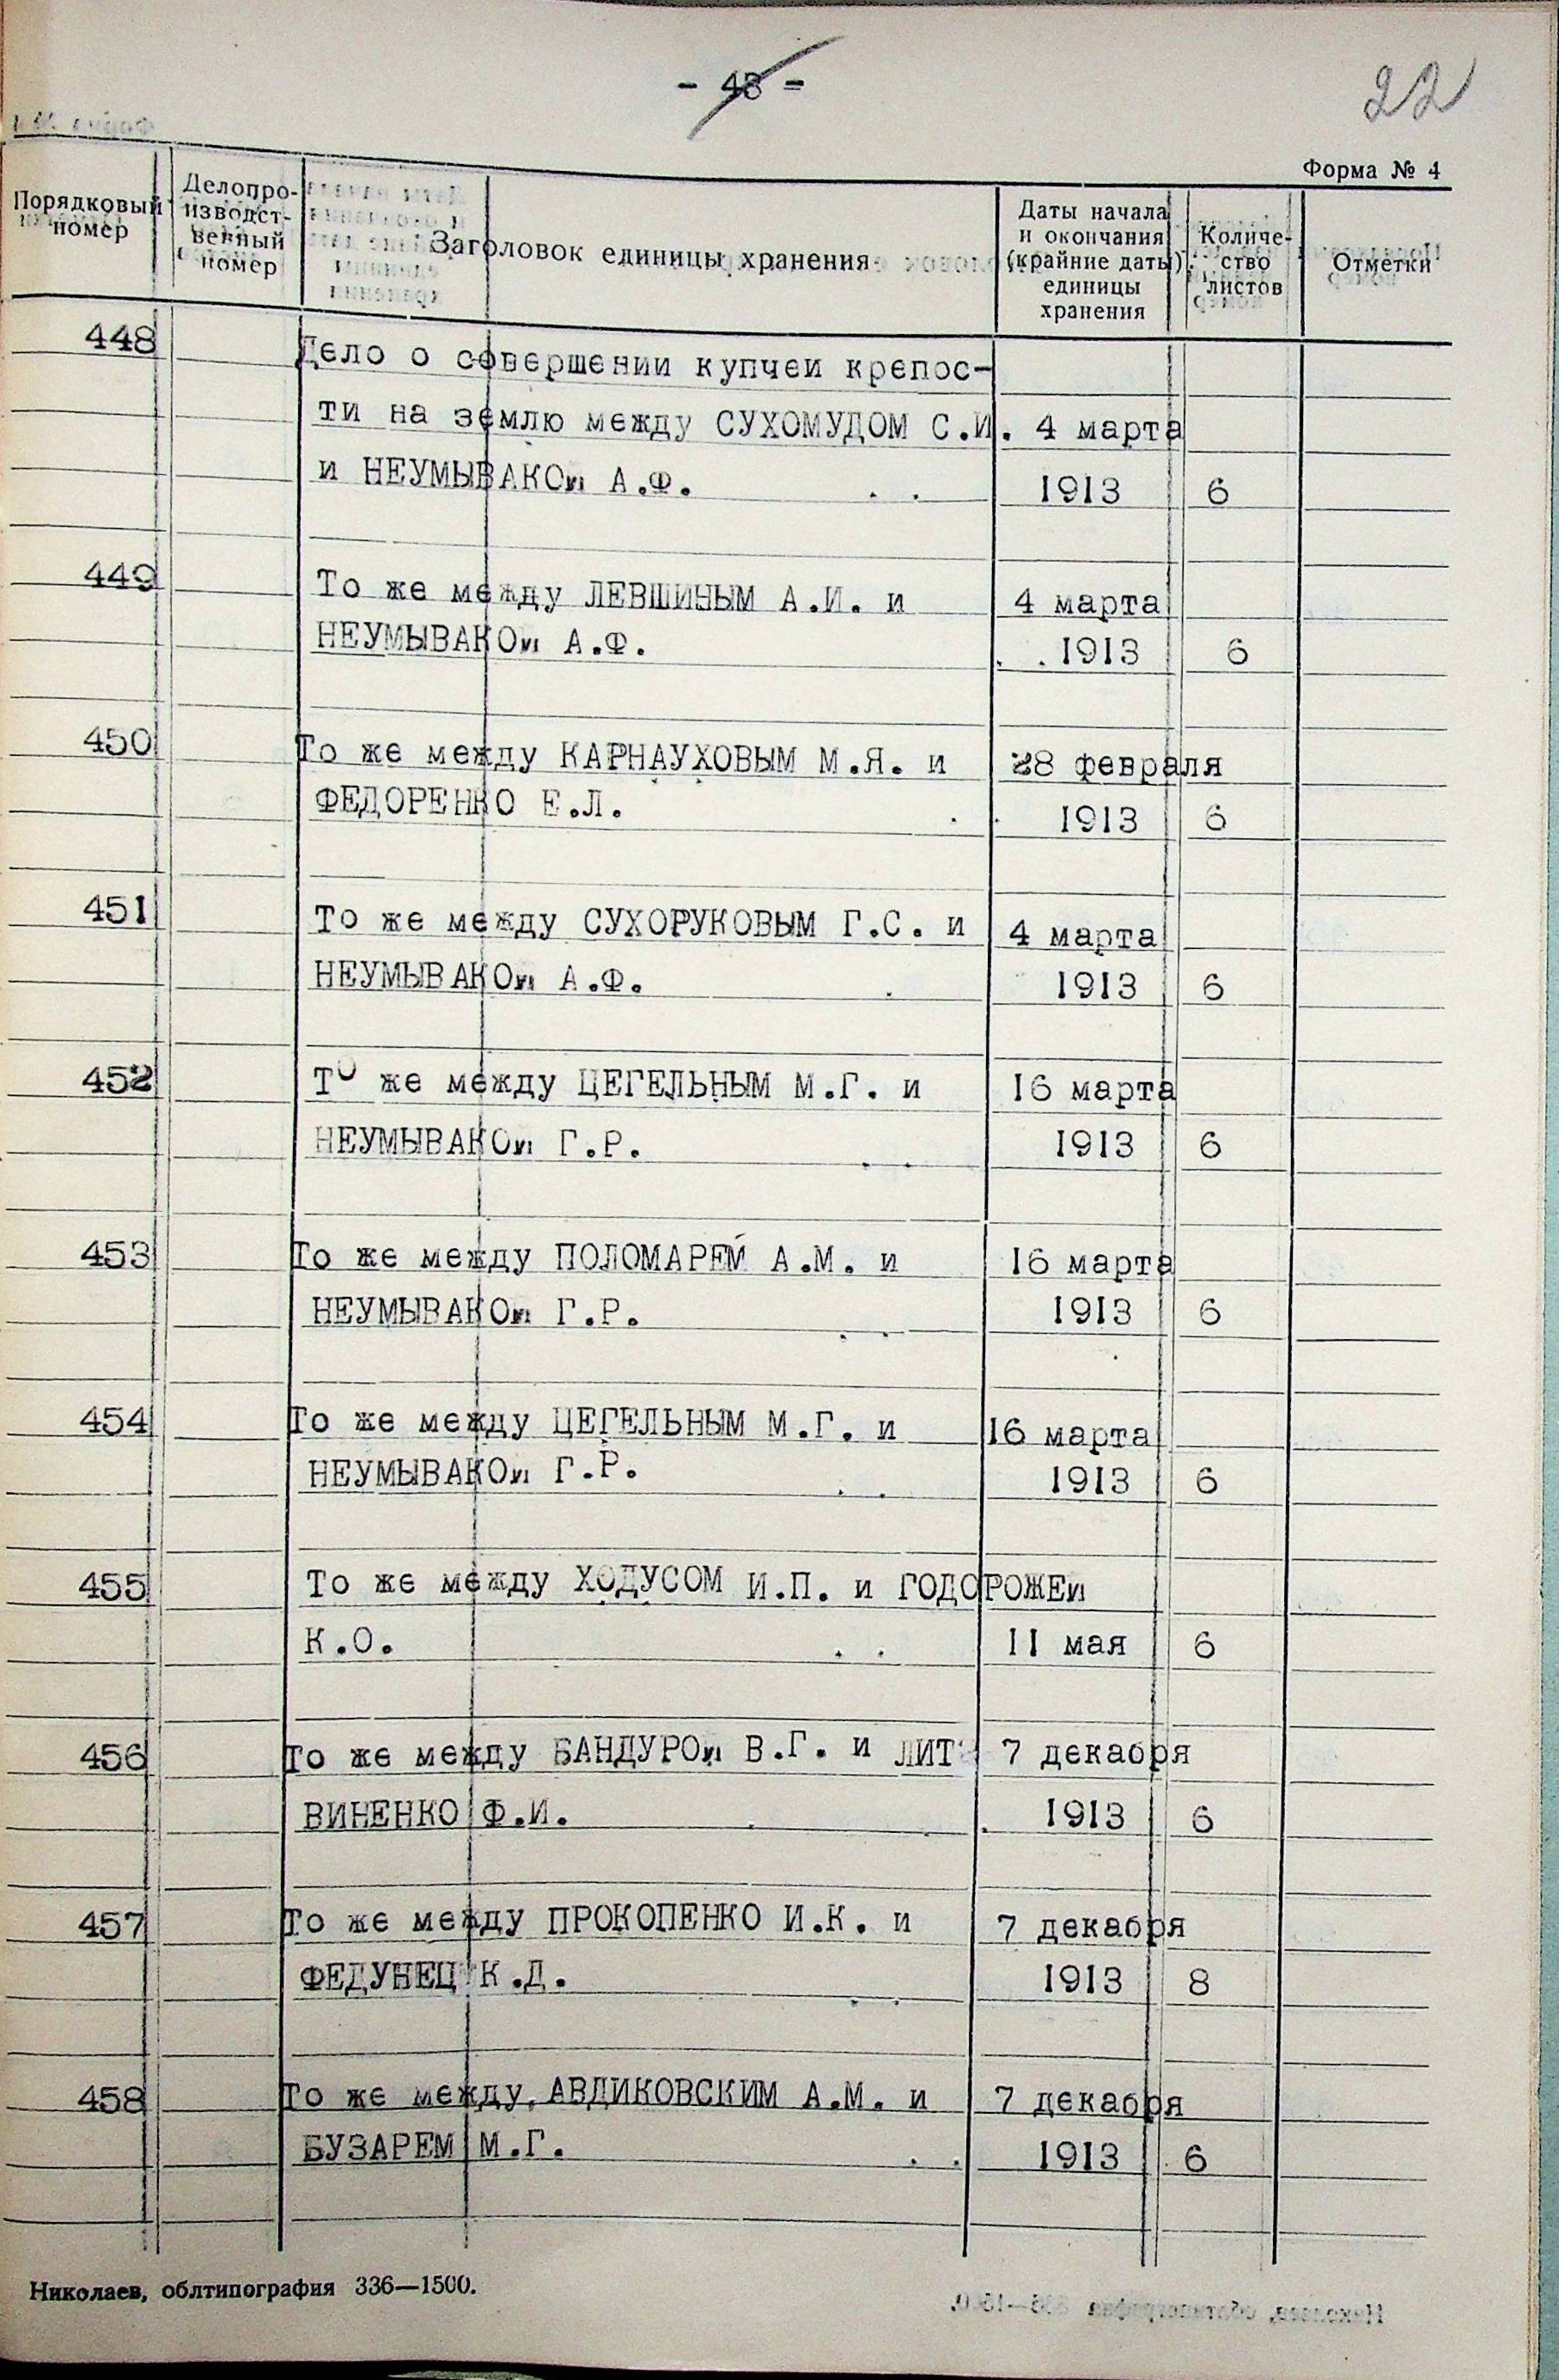 - 43 -
22
Форма № 4
Порядковый номер
Делопро-
изводст-
венный
номер
Заголовок единицы хранения
Даты начала
и окончания
(крайние даты)
единицы
хранения
Количе-
ство
листов
Отметки
448 Дело о совершении купчей крепос-
ти на землю между СУХОМУДОМ С.И. 4 марта
и НЕУМЫВАКОй А.Ф. 1913 6
449 То же между ЛЕВШИНЫМ А.И. и 4 марта
НЕУМЫВАКОй А.Ф. 1913 6
450 То же между КАРНАУХОВЫМ М.Я. и 28 февраля
ФЕДОРЕНКО Е.Л. 1913 6
451 То же между СУХОРУКОВЫМ Г.С. и 4 марта
НЕУМЫВАКОй А.Ф. 1913 6
452 То же между ЦЕГЕЛЬНЫМ М.Г. и 16 марта
НЕУМЫВАКОй Г.Р. 1913 6
453 То же между ПОЛОМАРЕМ А.М. и 16 марта
НЕУМЫВАКОй Г.Р. 1913 6
454 То же между ЦЕГЕЛЬНЫМ М.Г. и 16 марта
НЕУМЫВАКОй Г.Р. 1913 6
455 То же между ХОДУСОМ И.П. и ГОДОРОЖЕй
К.О. 11 мая 6
456 То же между БАНДУРОй В.Г. и ЛИТ 7 декабря
ВИНЕНКО Ф.И. 1913 6
457 То же между ПРОКОПЕНКО И.К. и 7 декабря
ФЕДУНЕЦ К.Д. 1913 8
458 То же между АВДИКОВСКИМ А.М. и 7 декабря
БУЗАРЕМ М.Г. 1913 6
Николаев, облтипография 336—1500.